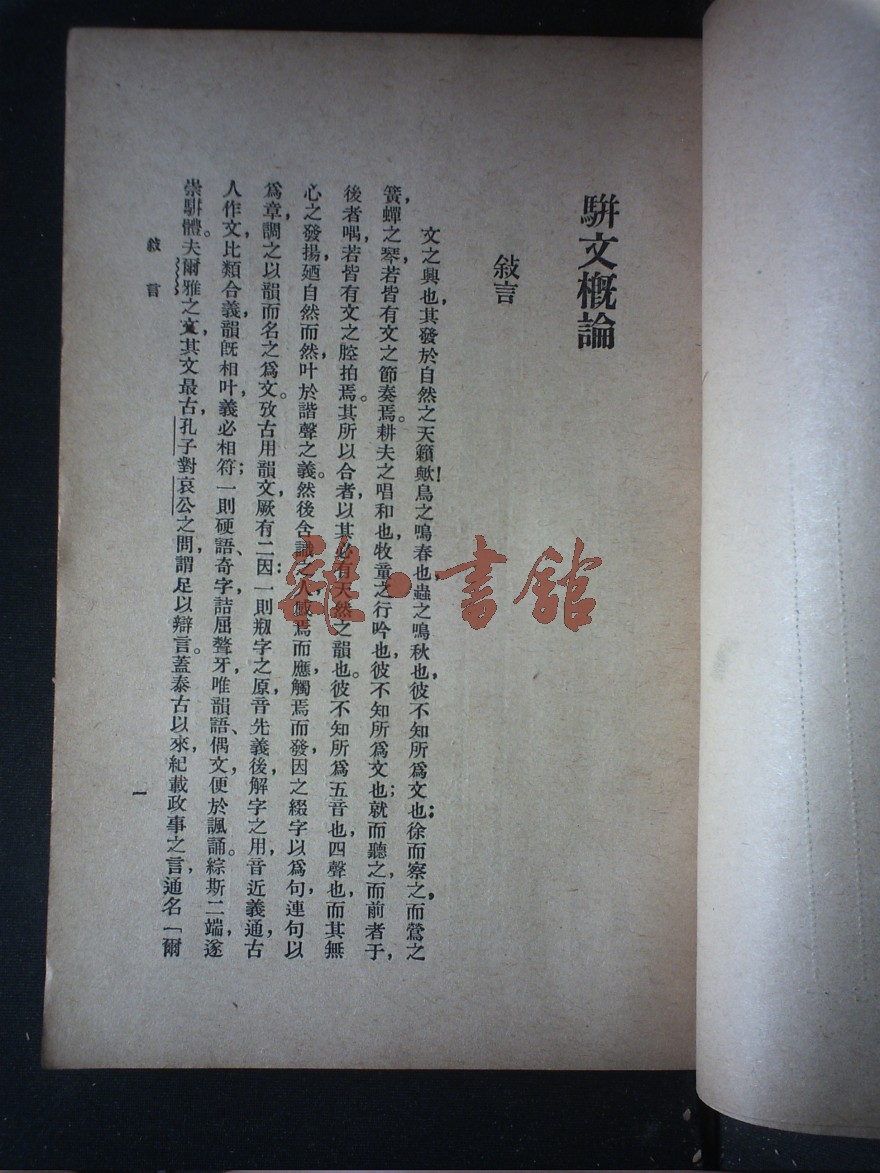 駢文概論
敍言
文之興也，其發於自然之天籟歟！鳥之鳴春也，蟲之鳴秋也，彼不知所爲文也；徐而察之，而鶯之
簧，蟬之琴，若皆有文之節奏焉。耕夫之唱和也，牧童之行吟也，彼不知所爲文也；就而聽之，而前者于，
後者喁，若皆有文之腔拍焉。其所以合者，以其必有天然之韻也。彼不知所爲五音也，四聲也，而其無
心之發揚，廼自然而然叶於諧聲之義。然後含識之人，感焉而應，觸焉而發，因之綴字以爲句，連句以
爲章，調之以韻而名之爲文。攷古用韻文，厥有二因：一則㓨字之原，音先義後，解字之用，音近義通，古
人作文，比類合義，韻旣相叶，義必相符；一則硬語、奇字，詰屈聱牙，唯韻語、偶文，便於諷誦。綜斯二端，遂
崇駢體。夫爾雅之文，其文最古，孔子對哀公之問，謂足以辯言。蓋泰古以來，紀載政事之言，通名「爾
敍言
一
雜·書館